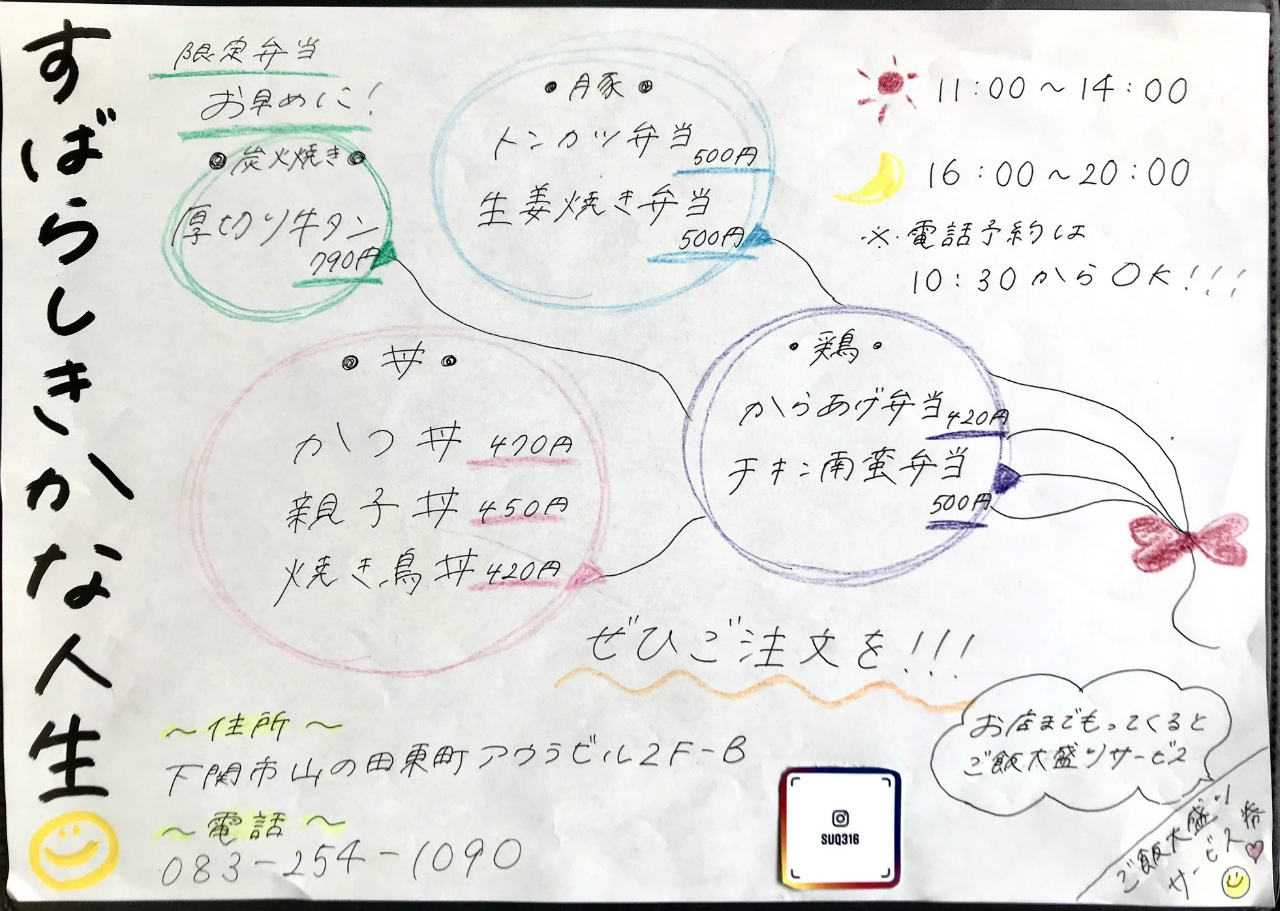 すばらしきかな人生
限定弁当
お早めに!
炭火焼き
厚切り牛タン
790円
豚
トンカツ弁当
500円
生姜焼き弁当
500円
11:00〜14:00
16:00〜20:00
※電話予約は
10:30からOK!!!
丼
かつ丼 470円
親子丼 450円
焼き鳥丼 420円
鶏
からあげ弁当 420円
チキン南蛮弁当
500円
ぜひご注文を!!!
〜住所〜
下関市山の田東町アウラビル2F-B
〜電話〜
083-254-1090
SUQ316
お店までもってくると
ご飯大盛りサービス
ご飯大盛り
サービス券